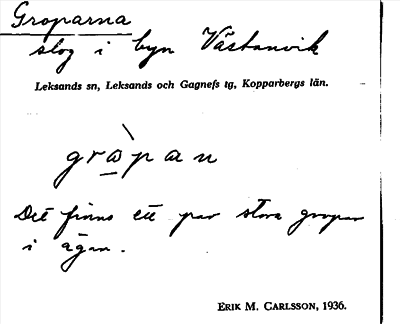 Groparna
slog i byn Västanvik
Leksands sn, Leksands och Gagnefs tg, Kopparbergs län.
gràpan
Det finns ett par stora gropar
i ägan.
ERIK M. CARLSSON, 1936.